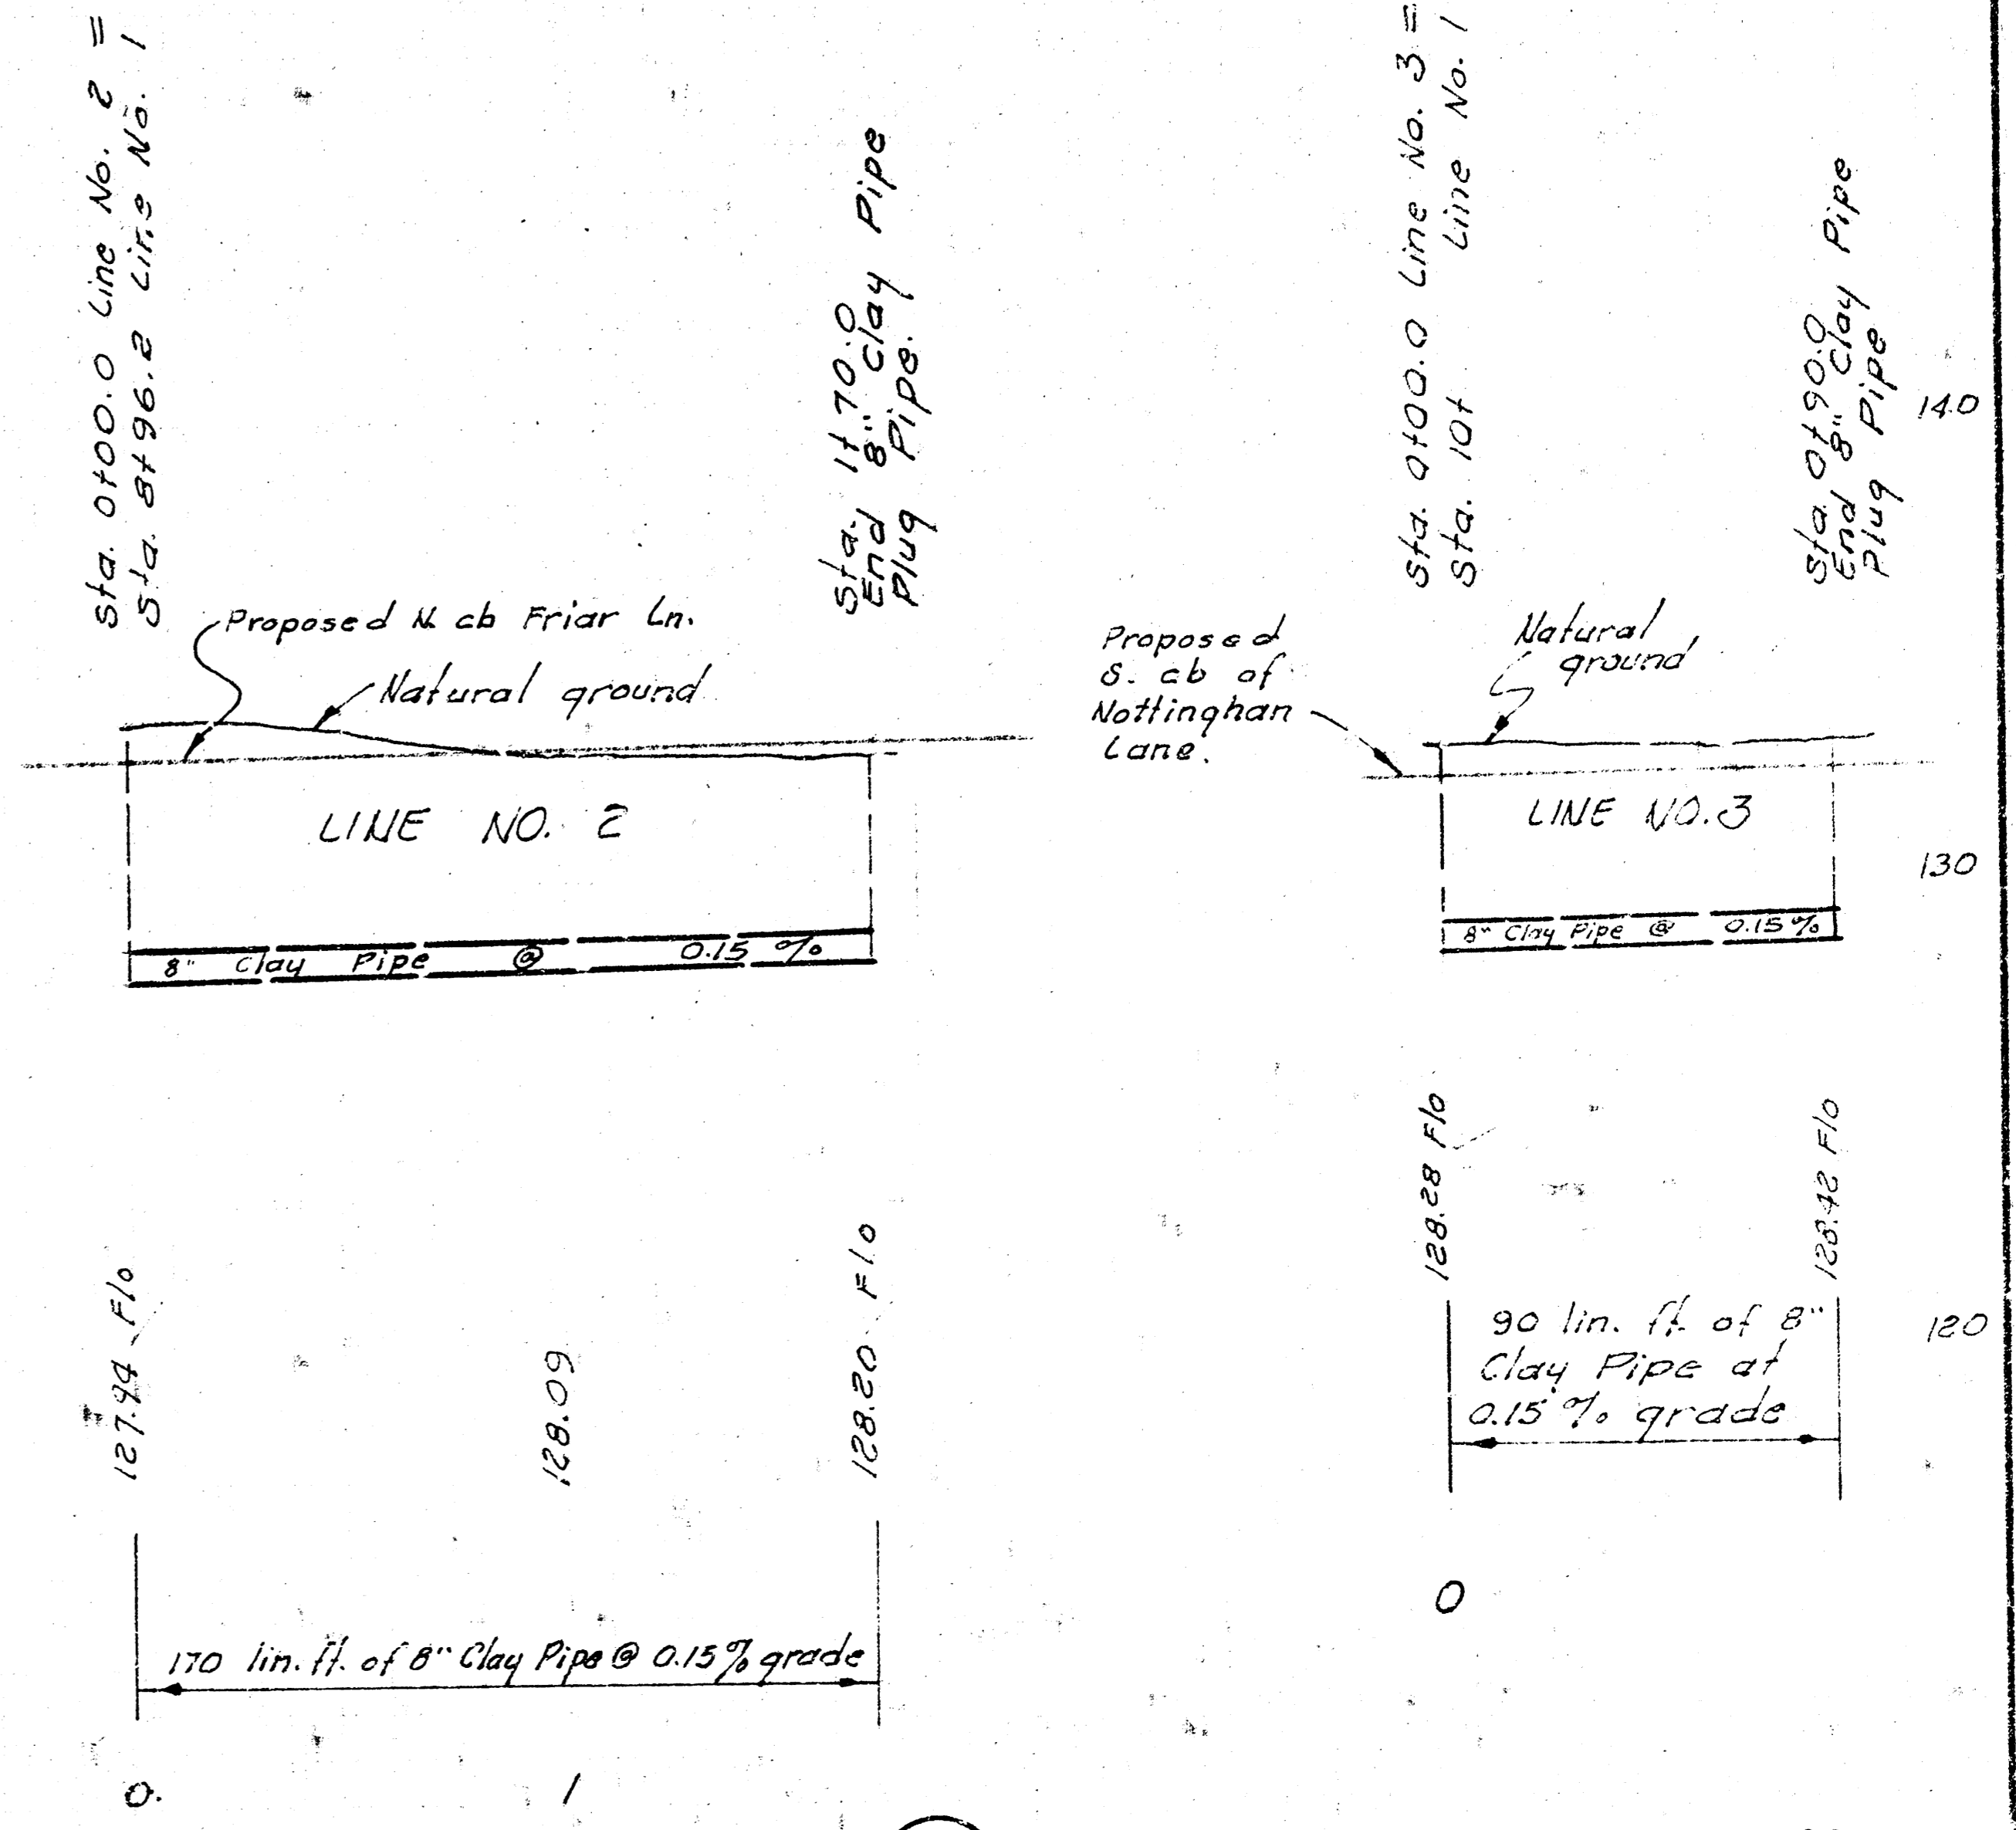 Sta. 0+00.0 Line No. 2 =
Sta. 8+96.2 Line No. 1
Sta. 1+70.0
End 8" Clay Pipe
Plug Pipe.
Sta. 0+00.0 Line No. 3 =
Sta. 10+ Line No. 1
Sta. 0+90.0
End 8" Clay Pipe
Plug Pipe
140
Proposed N. cb Friar Ln.
Natural ground
Proposed
S. cb of
Nottinghan
Lane.
Natural
ground
LINE NO. 2
LINE NO. 3
130
8" Clay Pipe @ 0.15 %
8" Clay Pipe @ 0.15 %
127.94 Flo
128.09
128.20 Flo
128.28 Flo
128.42 Flo
90 lin. ft. of 8"
Clay Pipe at
0.15 % grade
120
0
170 lin. ft. of 8" Clay Pipe @ 0.15 % grade
0.
1